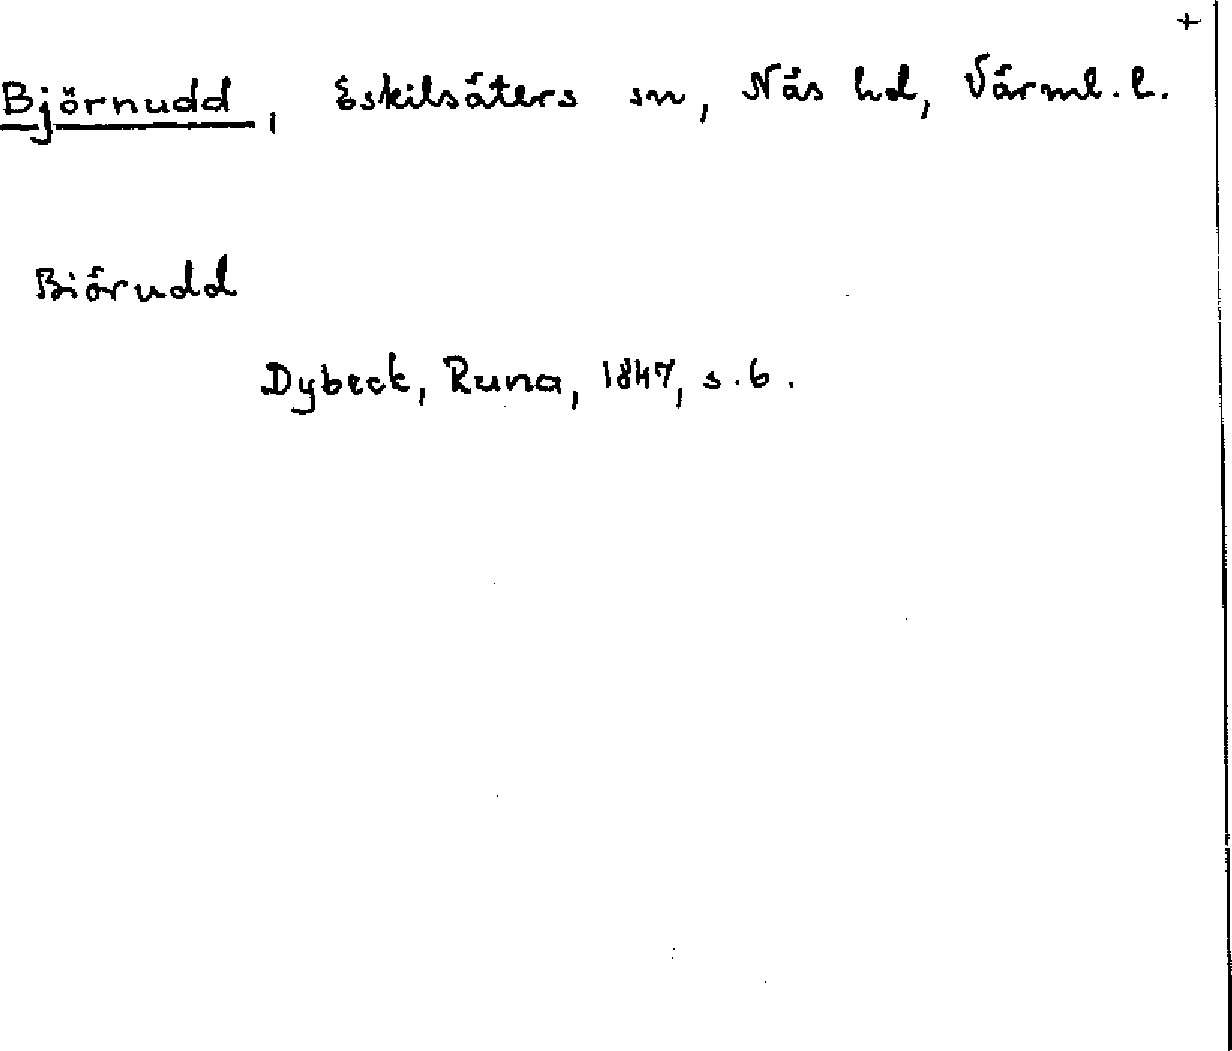 +
Björnudd, Eskilsäters sn, Näs hd, Värml. l.
Biörudd
Dybeck, Runa, 1847, s. 6.